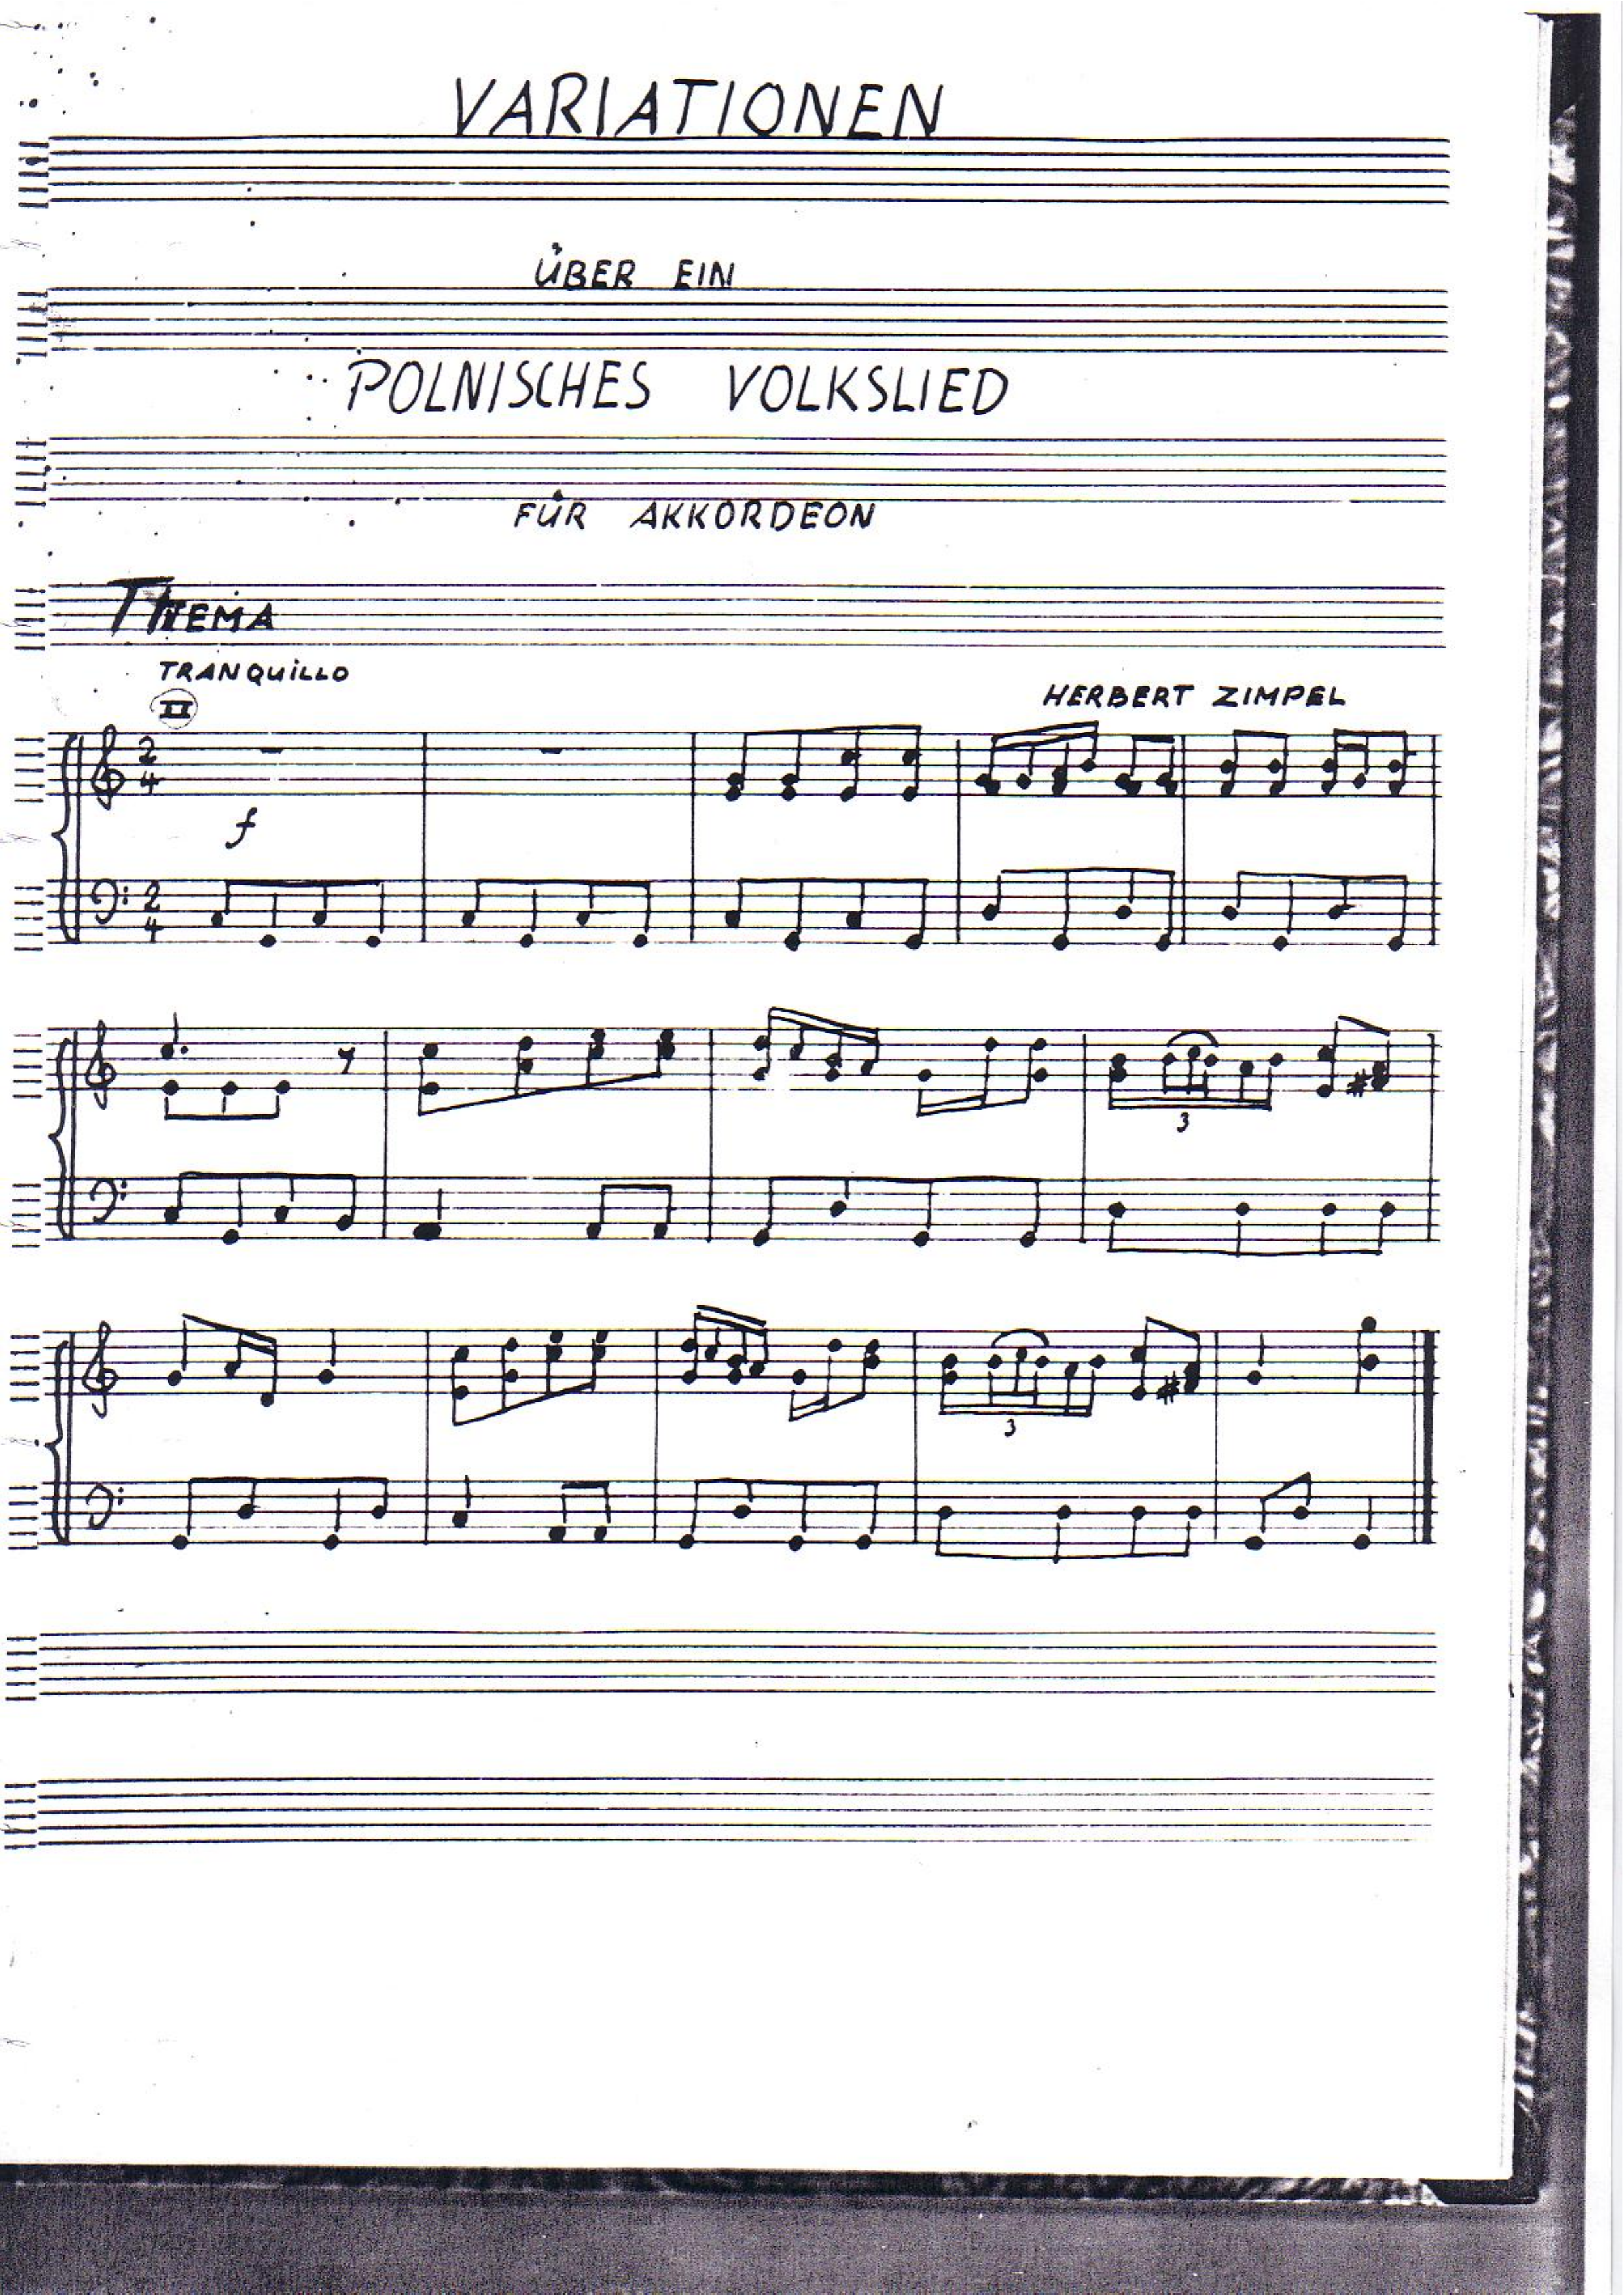 VARIATIONEN
ÜBER EIN
POLNISCHES VOLKSLIED
FÜR AKKORDEON
THEMA
TRANQUILLO
II
HERBERT ZIMPEL
2
4
f
2
4
3
3